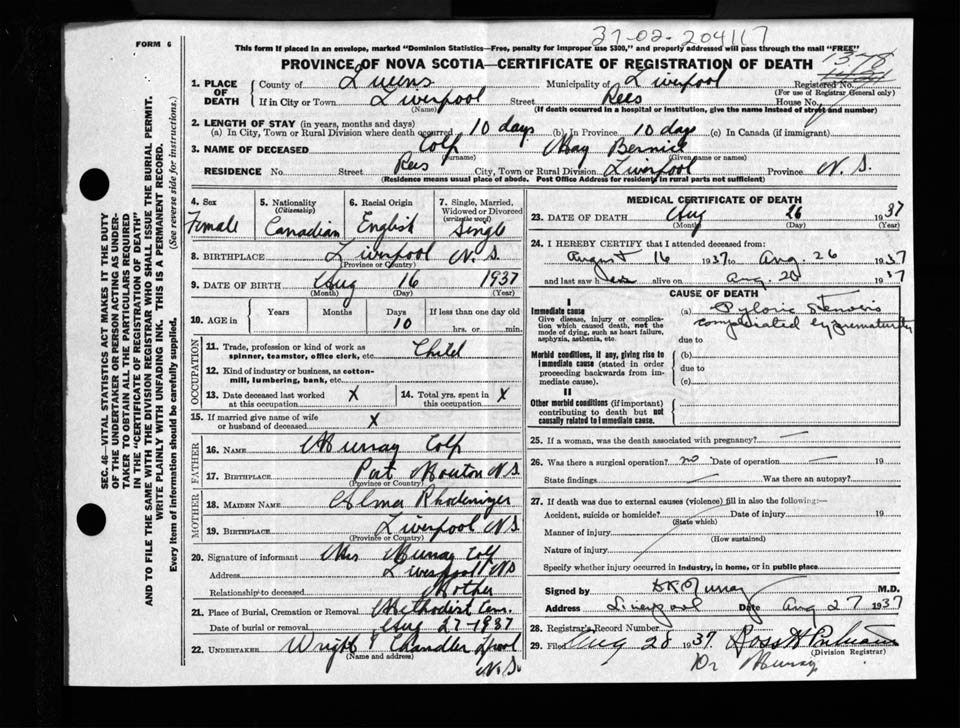 37-02-204117
FORM 6
This form if placed in an envelope, marked "Dominion Statistics—Free, penalty for improper use $300," and properly addressed will pass through the mail "FREE"
PROVINCE OF NOVA SCOTIA—CERTIFICATE OF REGISTRATION OF DEATH
1378
1. PLACE OF DEATH
County of Queens Municipality of Liverpool Registered No.
(For use of Registrar General only)
If in City or Town Liverpool Street Rees House No.
(Name) (If death occurred in a hospital or institution, give the name instead of street and number)
2. LENGTH OF STAY (in years, months and days)
(a) In City, Town or Rural Division where death occurred 10 days (b) In Province 10 days (c) In Canada (if immigrant)
3. NAME OF DECEASED Colp May Bernice
(Surname) (Given name or names)
RESIDENCE No. Street Rees City, Town or Rural Division Liverpool Province N.S.
(Residence means usual place of abode. Post Office Address for residents in rural parts not sufficient)
4. Sex Female
5. Nationality (Citizenship) Canadian
6. Racial Origin English
7. Single, Married, Widowed or Divorced (write the word) Single
8. BIRTHPLACE Liverpool N.S.
(Province or Country)
9. DATE OF BIRTH Aug 16 1937
(Month) (Day) (Year)
10. AGE in Years Months Days 10 If less than one day old hrs. or min.
OCCUPATION
11. Trade, profession or kind of work as spinner, teamster, office clerk, etc. Child
12. Kind of industry or business, as cotton-mill, lumbering, bank, etc.
13. Date deceased last worked at this occupation X
14. Total yrs. spent in this occupation X
15. If married give name of wife or husband of deceased X
FATHER
16. NAME Murray Colp
17. BIRTHPLACE Port Mouton N.S.
(Province or Country)
MOTHER
18. MAIDEN NAME Alma Rhodenizer
19. BIRTHPLACE Liverpool N.S.
(Province or Country)
20. Signature of informant Mrs Murray Colp
Address Liverpool N.S.
Relationship to deceased Mother
21. Place of Burial, Cremation or Removal Methodist Cem.
Date of burial or removal Aug 27-1937
22. UNDERTAKER Wright & Chandler Lpool
(Name and address) N.S.
MEDICAL CERTIFICATE OF DEATH
23. DATE OF DEATH Aug 26 1937
(Month) (Day) (Year)
24. I HEREBY CERTIFY that I attended deceased from:
August 16 1937 to Aug. 26 1937
and last saw h alive on Aug. 20 1937
CAUSE OF DEATH
I
Immediate cause
Give disease, injury or complication which caused death, not the mode of dying, such as heart failure, asphyxia, asthenia, etc.
(a) Pyloric Stenosis
complicated by prematurity
due to
Morbid conditions, if any, giving rise to immediate cause (stated in order proceeding backwards from immediate cause).
(b)
due to
(c)
II
Other morbid conditions (if important) contributing to death but not causally related to immediate cause.
25. If a woman, was the death associated with pregnancy? —
26. Was there a surgical operation? no Date of operation — 19
State findings Was there an autopsy?
27. If death was due to external causes (violence) fill in also the following:—
Accident, suicide or homicide? Date of injury 19
(State which)
Manner of injury
(How sustained)
Nature of injury
Specify whether injury occurred in Industry, in home, or in public place
Signed by Murray M.D.
Address Liverpool Date Aug 27 1937
28. Registrar's Record Number
29. Filed Aug 28 1937 Ross H
(Division Registrar)
Dr Murray
SEC. 46—VITAL STATISTICS ACT MAKES IT THE DUTY
OF THE UNDERTAKER OR PERSON ACTING AS UNDER-
TAKER TO OBTAIN ALL THE PARTICULARS REQUIRED
IN THE "CERTIFICATE OF REGISTRATION OF DEATH"
AND TO FILE THE SAME WITH THE DIVISION REGISTRAR WHO SHALL ISSUE THE BURIAL PERMIT.
WRITE PLAINLY WITH UNFADING INK. THIS IS A PERMANENT RECORD.
Every item of information should be carefully supplied. (See reverse side for instructions.)